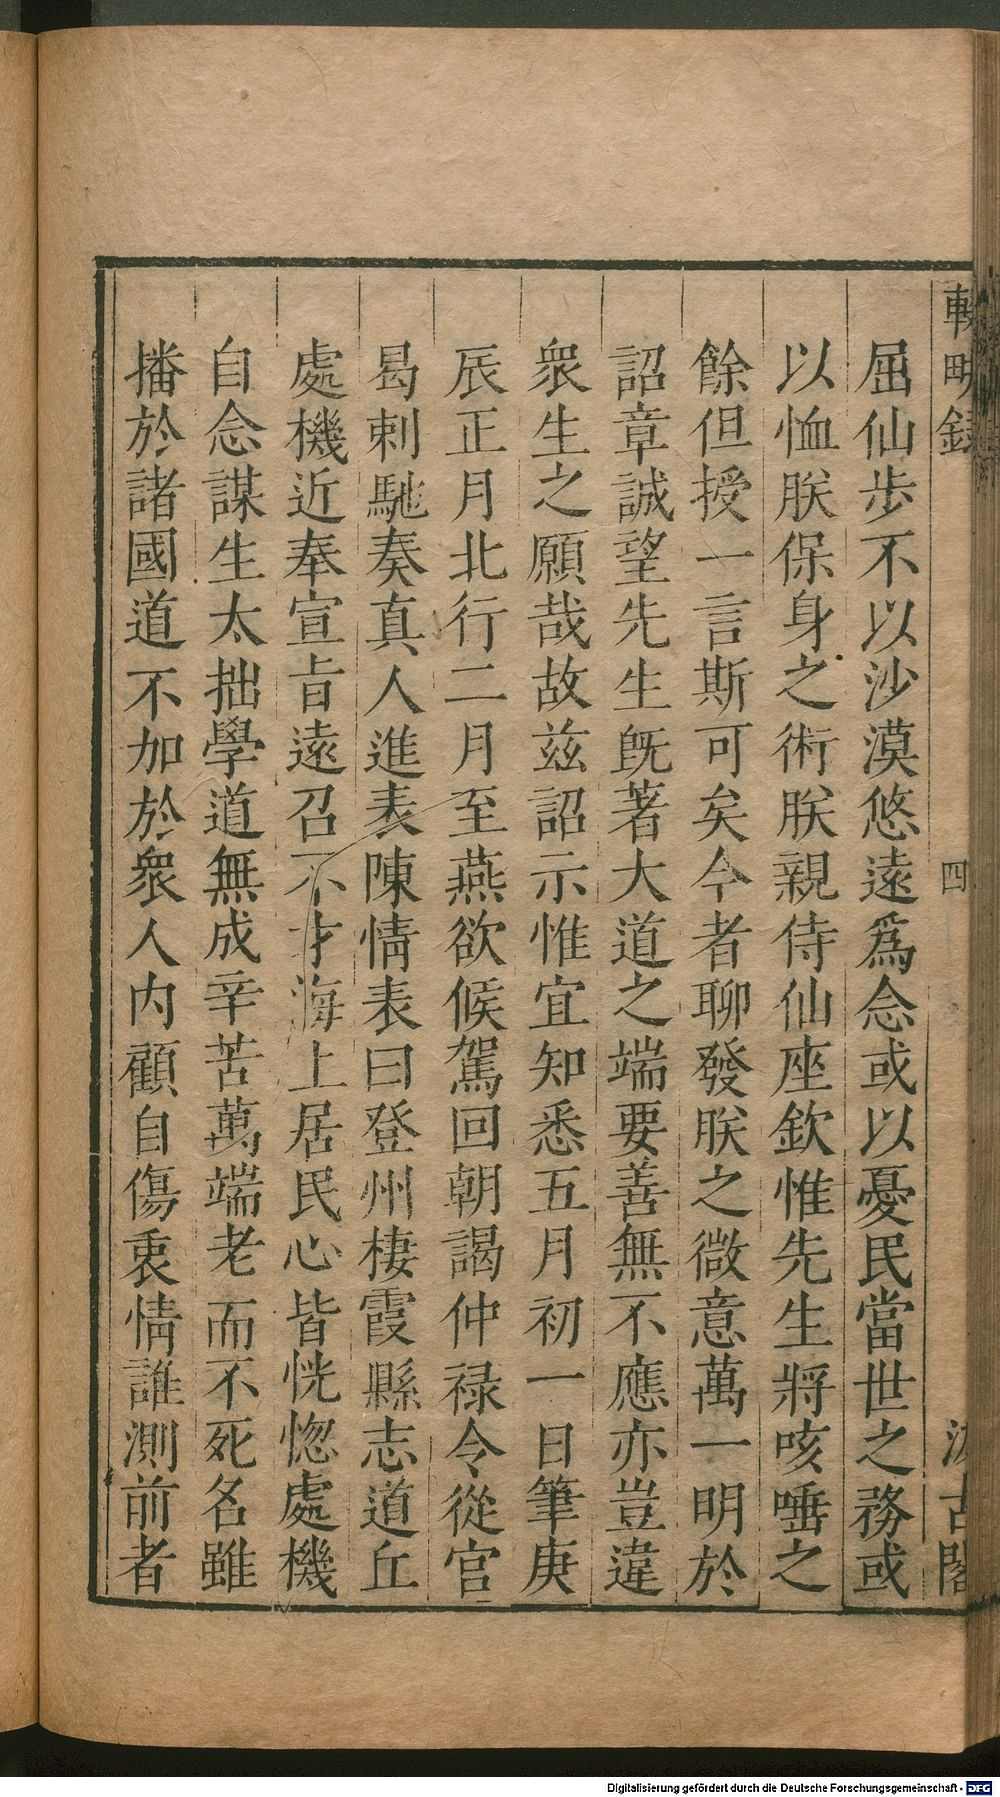 輟畊錄
四
汲古閣
屈仙步不以沙漠悠遠爲念或以憂民當世之務或
以恤朕保身之術朕親侍仙座欽惟先生將咳唾之
餘但授一言斯可矣今者聊發朕之微意萬一明於
詔章誠望先生旣著大道之端要善無不應亦豈違
衆生之願哉故茲詔示惟宜知悉五月初一日筆庚
辰正月北行二月至燕欲候駕回朝謁仲禄令從官
曷剌馳奏真人進表陳情表曰登州棲霞縣志道丘
處機近奉宣旨遠召不才海上居民心皆恍惚處機
自念謀生太拙學道無成辛苦萬端老而不死名雖
播於諸國道不加於衆人内顧自傷衷情誰測前者
Digitalisierung gefördert durch die Deutsche Forschungsgemeinschaft - DFG